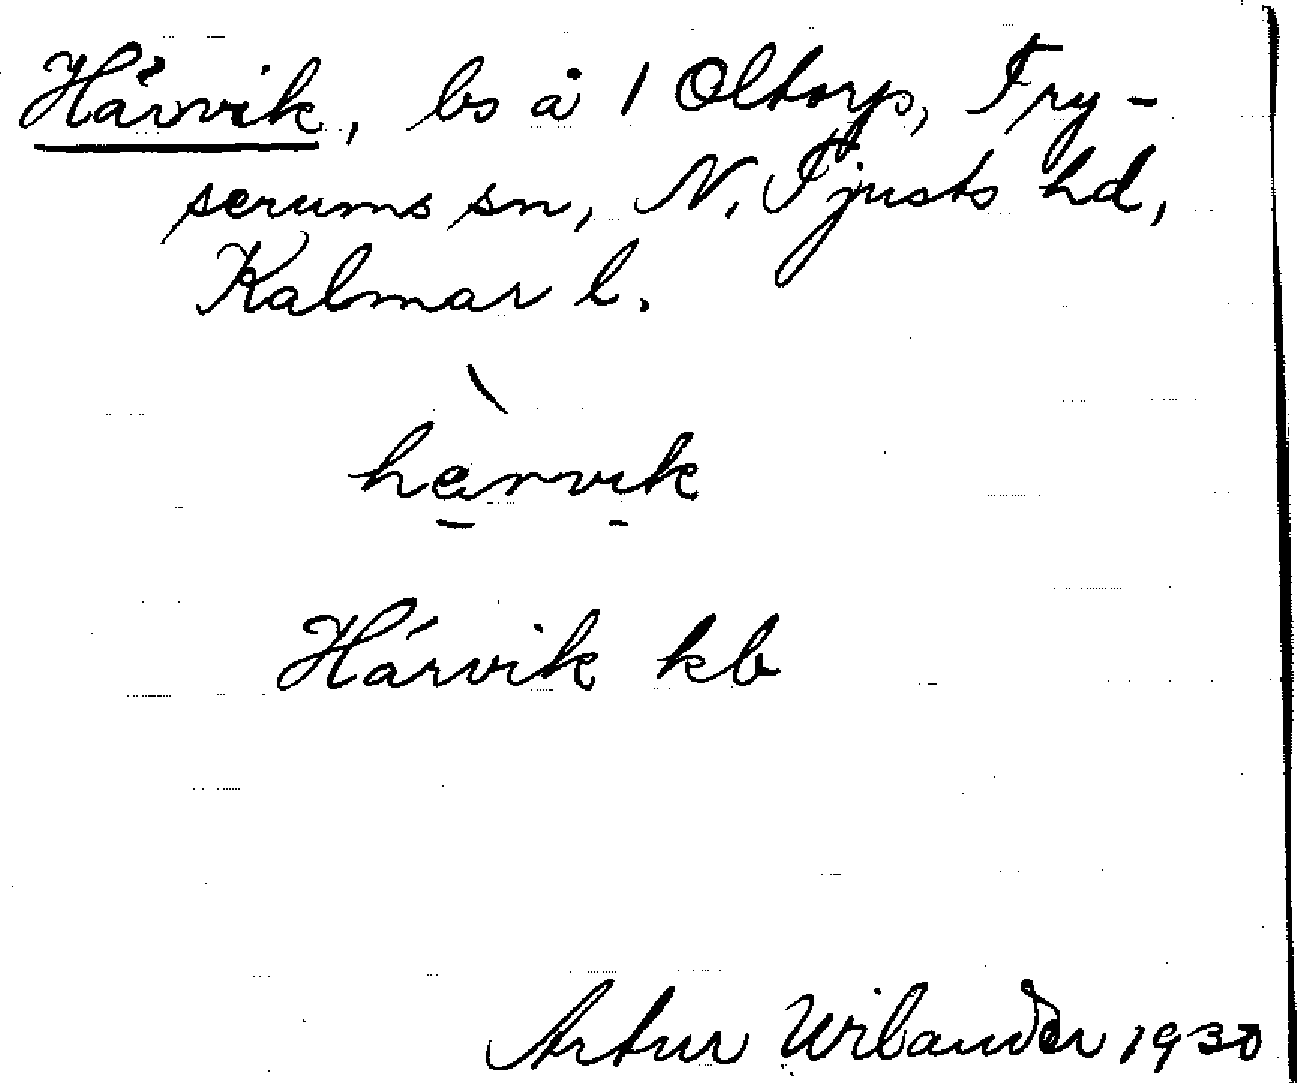 Hårvik, ls å 1 Oltorp, Try-
serums sn, N. Tjusts hd,
Kalmar l.
hàrvik
Hárvik kb
Artur Wilander 1930